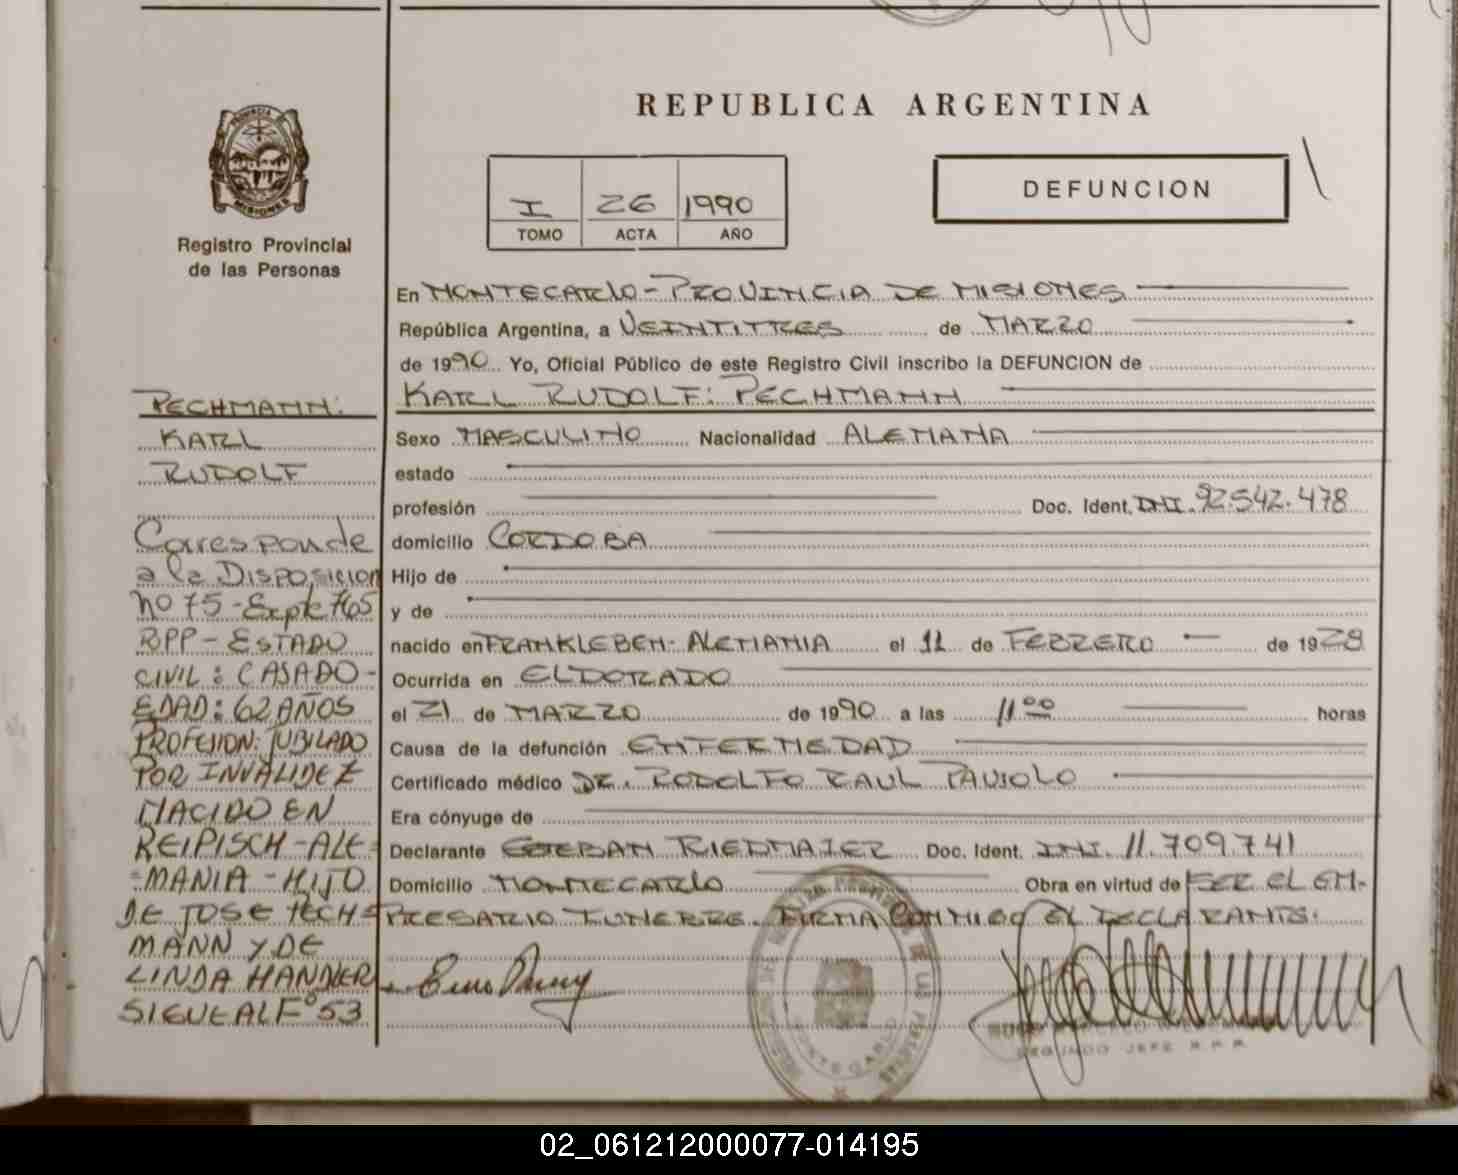 REPUBLICA ARGENTINA
I 26 1990
TOMO ACTA AÑO
DEFUNCION
PROVINCIA DE
MISIONES
Registro Provincial
de las Personas
En MONTECARLO - PROVINCIA DE MISIONES
República Argentina, a VEINTITRES de MARZO
de 1990 Yo, Oficial Público de este Registro Civil inscribo la DEFUNCION de
KARL RUDOLF: PECHMANN
Sexo MASCULINO Nacionalidad ALEMANA
estado
profesión Doc. Ident. DNI. 92.542.478
domicilio CORDOBA
Hijo de
y de
nacido en FRANKLEBEN - ALEMANIA el 11 de FEBRERO de 1928
Ocurrida en ELDORADO
el 21 de MARZO de 1990 a las 11 00 horas
Causa de la defunción ENFERMEDAD
Certificado médico DR. RODOLFO RAUL PAVIOLO
Era cónyuge de
Declarante ESTEBAN RIEDMAIER Doc. Ident. DNI. 11.709.741
Domicilio MONTECARLO Obra en virtud de SER EL EM-
PRESARIO FUNEBRE. FIRMA CONMIGO EL DECLARANTE.
PECHMANN:
KARL
RUDOLF
Corresponde
a la DISPOSICION
Nº 75 - Expte 765
RPP - ESTADO
CIVIL: CASADO -
EDAD: 62 AÑOS
PROFESION: JUBILADO
POR INVALIDEZ
NACIDO EN
REIPISCH - ALE-
MANIA - HIJO
DE JOSE PECH-
MANN Y DE
LINDA HANDLER
SIGUE AL Fº 53
MONTECARLO
SEGUNDO JEFE R.P.P.
02_061212000077-014195